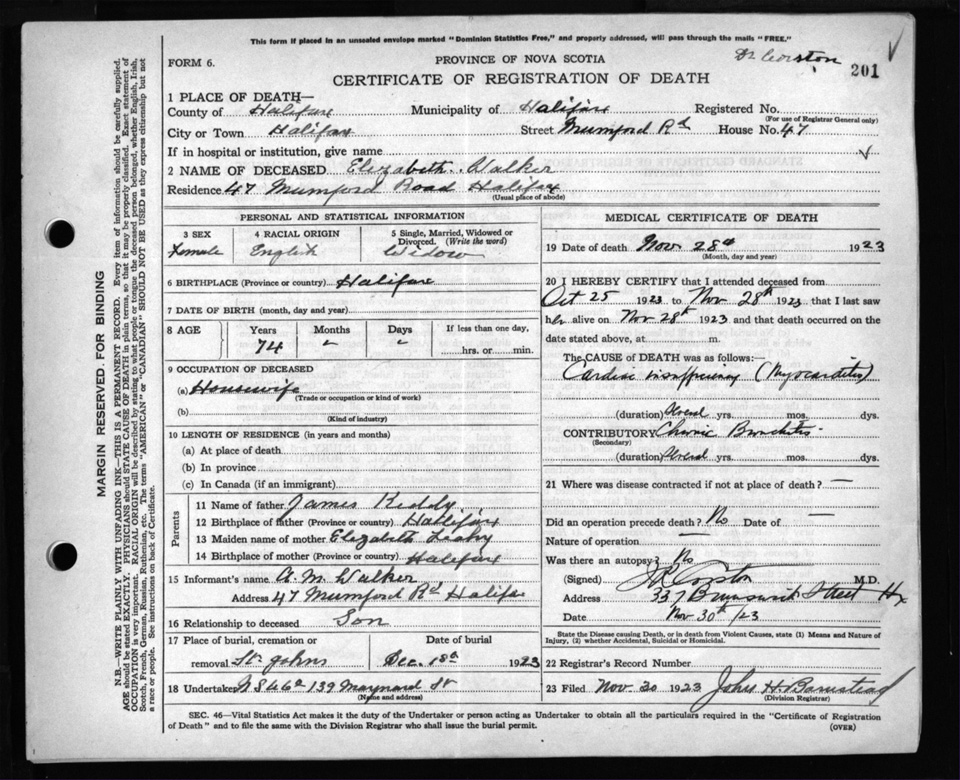 This form if placed in an unsealed envelope marked "Dominion Statistics Free," and properly addressed, will pass through the mails "FREE."
Dr Corston
201
FORM 6.
PROVINCE OF NOVA SCOTIA
CERTIFICATE OF REGISTRATION OF DEATH
1 PLACE OF DEATH—
County of Halifax Municipality of Halifax Registered No.
(For use of Registrar General only)
City or Town Halifax Street Mumford Rd House No. 47
If in hospital or institution, give name
2 NAME OF DECEASED Elizabeth Walker
Residence 47 Mumford Road Halifax
(Usual place of abode)
PERSONAL AND STATISTICAL INFORMATION
3 SEX Female
4 RACIAL ORIGIN English
5 Single, Married, Widowed or Divorced. (Write the word) Widow
6 BIRTHPLACE (Province or country) Halifax
7 DATE OF BIRTH (month, day and year)
8 AGE Years Months Days If less than one day,
74 " " hrs. or min.
9 OCCUPATION OF DECEASED
(a) Housewife
(Trade or occupation or kind of work)
(b)
(Kind of industry)
10 LENGTH OF RESIDENCE (in years and months)
(a) At place of death
(b) In province
(c) In Canada (if an immigrant)
Parents
11 Name of father James Keddy
12 Birthplace of father (Province or country) Halifax
13 Maiden name of mother Elizabeth Leahy
14 Birthplace of mother (Province or country) Halifax
15 Informant's name A. M. Walker
Address 47 Mumford Rd Halifax
16 Relationship to deceased Son
17 Place of burial, cremation or removal St Johns
Date of burial Dec. 1st 1923
18 Undertaker 139 Maynard St
(Name and address)
MEDICAL CERTIFICATE OF DEATH
19 Date of death Nov 28th 1923
(Month, day and year)
20 I HEREBY CERTIFY that I attended deceased from
Oct 25 1923 to Nov 28th 1923 that I last saw
her alive on Nov 28th 1923 and that death occurred on
date stated above, at m.
The CAUSE OF DEATH was as follows:
Cardiac insufficiency (Myocarditis)
(duration) Several yrs. mos. dys.
CONTRIBUTORY Chronic Bronchitis
(Secondary)
(duration) Several yrs. mos. dys.
21 Where was disease contracted if not at place of death? —
Did an operation precede death? No Date of —
Nature of operation —
Was there an autopsy? No
(Signed) Corston M.D.
Address 337 Brunswick Street Hx
Date Nov 30th /23
State the Disease causing Death, or in death from Violent Causes, state (1) Means and Nature of
Injury, (2) whether Accidental, Suicidal or Homicidal.
22 Registrar's Record Number
23 Filed Nov. 30 1923 John H. Barnstead
(Division Registrar)
SEC. 46—Vital Statistics Act makes it the duty of the Undertaker or person acting as Undertaker to obtain all the particulars required in the "Certificate of Registration
of Death" and to file the same with the Division Registrar who shall issue the burial permit.
(OVER)
MARGIN RESERVED FOR BINDING
N.B.—WRITE PLAINLY WITH UNFADING INK—THIS IS A PERMANENT RECORD. Every item of information should be carefully supplied.
AGE should be stated EXACTLY. PHYSICIANS should STATE CAUSE OF DEATH in plain terms, so that it may be properly classified. Exact statement of
OCCUPATION is very important. RACIAL ORIGIN will be described by stating to what people or tongue the deceased person belonged, whether English, Irish,
Scotch, French, German, Russian, Ruthenian, etc. The terms "AMERICAN" or "CANADIAN" SHOULD NOT BE USED as they express citizenship but not
a race or people. See instructions on back of Certificate.